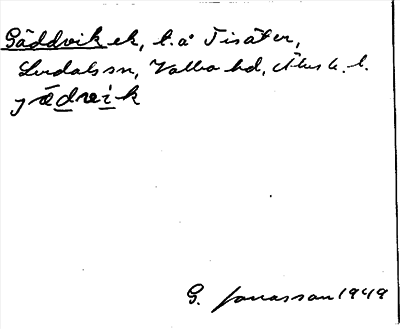 Gäddvik ek, t.å Tisäter,
Lerdals sn, Valbo hd, Älvsb. l.
jädvik
G. Jonasson 1949